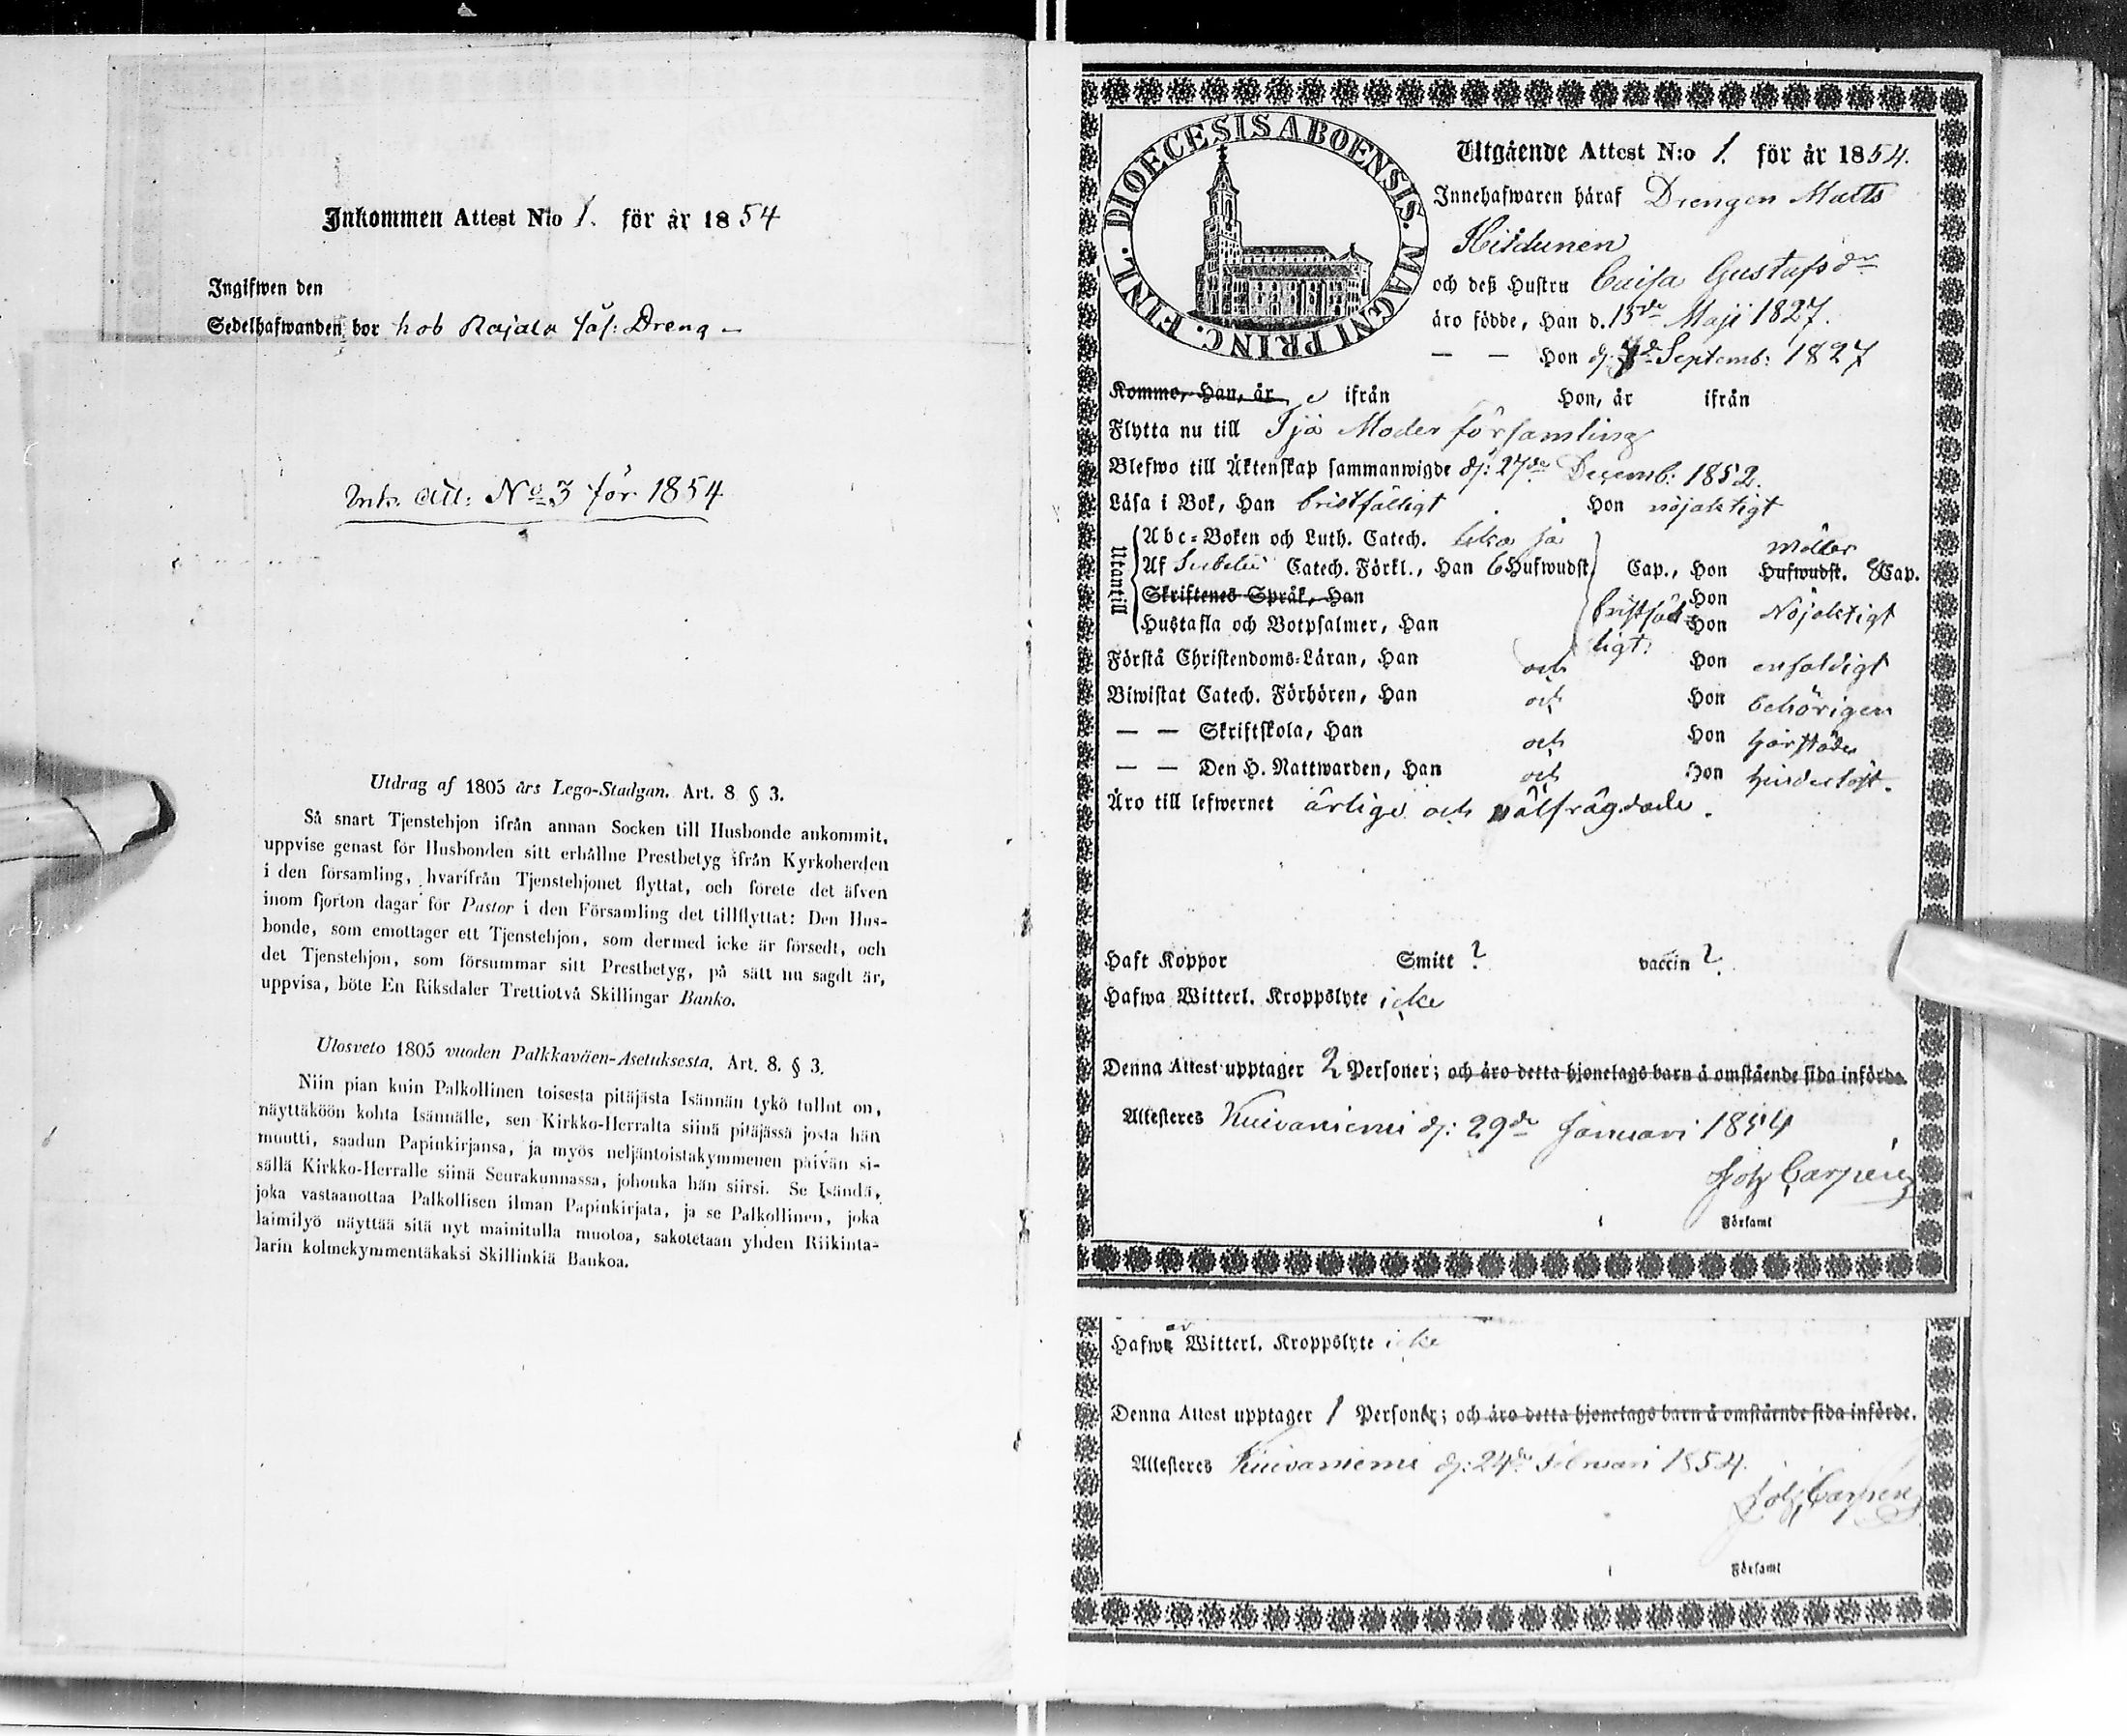 Inkommen Attest N:o 1. för år 1854
Ingifwen den
Sedelhafwanden bor hos Rajala sås: Dreng
Ink. Att: No 3 för 1854
Utdrag af 1805 års Lego-Stadgan. Art. 8 § 3.
Så snart Tjenstehjon ifrån annan Socken till Husbonde ankommit,
uppvise genast för Husbonden sitt erhållne Prestbetyg ifrån Kyrkoherden
i den församling, hvarifrån Tjenstehjonet flyttat, och förete det äfven
inom fjorton dagar för Pastor i den Församling det tillflyttat: Den Hus-
bonde, som emottager ett Tjenstehjon, som dermed icke är försedt, och
det Tjenstehjon, som försummar sitt Prestbetyg, på sätt nu sagdt är,
uppvisa, böte En Riksdaler Trettiotvå Skillingar Banko.
Ulosveto 1805 vuoden Palkkaväen-Asetuksesta. Art. 8. § 3.
Niin pian kuin Palkollinen toisesta pitäjästä Isännän tykö tullut on,
näyttäköön kohta Isännälle, sen Kirkko-Herralta siinä pitäjässä josta hän
muutti, saadun Papinkirjansa, ja myös neljäntoistakymmenen päivän si-
sällä Kirkko-Herralle siinä Seurakunnassa, johonka hän siirsi. Se Isändä,
joka vastaanottaa Palkollisen ilman Papinkirjata, ja se Palkollinen, joka
laimilyö näyttää sitä nyt mainitulla muotoa, sakotetaan yhden Riikinta-
larin kolmekymmentäkaksi Skillinkiä Bankoa.
DIOECESIS ABOENSIS. MAGNI PRINC. FINL.
Utgående Attest N:o 1. för år 1854.
Innehafwaren häraf Drengen Matts
Hildunen
och deß Hustru Caisa Gustafsdr
äro födde, Han d. 15de Maji 1827.
— — Hon d. 7de Septemb: 1827
Komme, Han, år ifrån Hon, år ifrån
Flytta nu till Ijo Moder församling
Blefwo till Äktenskap sammanwigde d: 27de Decemb: 1852.
Läsa i Bok, Han bristfälligt Hon nöjaktigt
Utantill
Abc-Boken och Luth. Catech. lika så
Af Catech. Förkl., Han 6 Hufwudst. Cap., Hon Hufwudst. 8 Cap.
Skriftenes Språk, Han Hon
Hustafla och Botpsalmer, Han bristfäl- Hon Nöjaktigt
ligt:
Förstå Christendoms-Läran, Han och Hon enfaldigt
Biwistat Catech. Förhören, Han och Hon behörigen
— — Skriftskola, Han och Hon
— — Den H. Nattwarden, Han och Hon hinderlöst.
Äro till lefwernet ärlige och välfrägdade.
Haft Koppor Smitt ? vaccin ?
Hafwa Witterl. Kroppslyte icke
Denna Attest upptager 2 Personer; och äro detta hjonelags barn å omstående sida införde.
Attesteres Kuivaniemi d: 29de Januari 1854
Joh Carpén
i Församl
Hafwa Witterl. Kroppslyte icke
Denna Attest upptager 1 Personer; och äro detta hjonelags barn å omstående sida införde.
Attesteres Kuivaniemi d: 24de Februari 1854.
Joh Carpén
i Församl